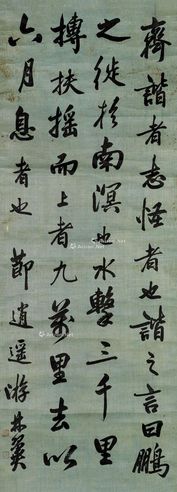 齊諧者志怪者也諧之言曰鵬
之徙於南溟也水擊三千里
摶扶搖而上者九萬里去以
六月息者也 節逍遙游 林奠